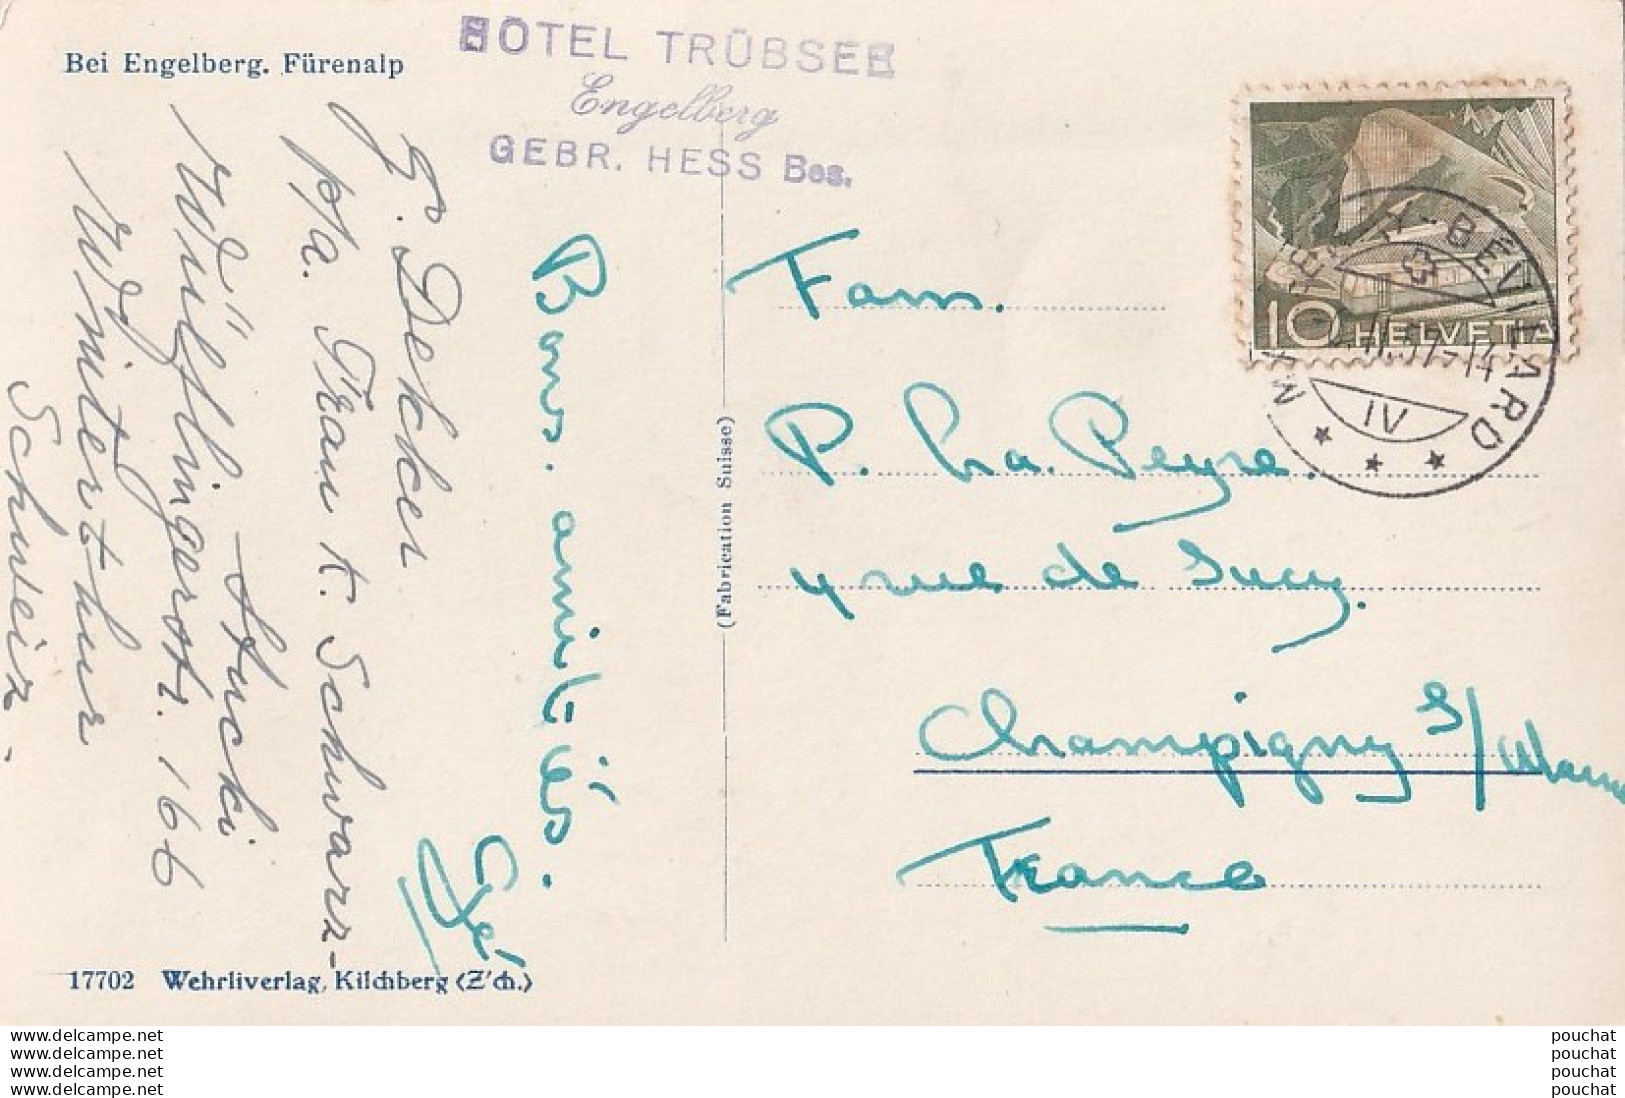 Bei Engelberg. Fürenalp
HOTEL TRÜBSEE
Engelberg
GEBR. HESS Bes.
10 HELVETIA
MALLERAY-BÉVILARD
IV
G. Decker
p/a. Frau K. Schwarz-
Stucki
Wülflingerstr. 166
Winterthur
Schweiz.
Bons. amitiés.
Fam.
P. La. Peyre.
4 rue de Sucy.
Champigny S/Marne
France
(Fabrication Suisse)
17702 Wehrliverlag, Kilchberg (Z'ch.)
www.delcampe.net
www.delcampe.net
www.delcampe.net
www.delcampe.net
pouchat
pouchat
pouchat
pouchat